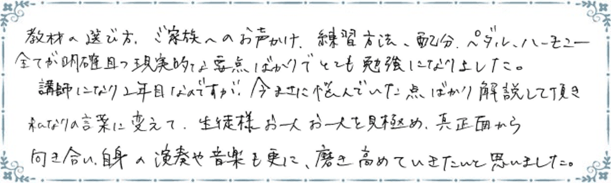 教材の選び方、ご家族へのお声がけ、練習方法、配分、ペダル、ハーモニー
全てが明確且つ現実的な要点ばかりでとても勉強になりました。
講師になり2年目なのですが、今まさに悩んでいた点ばかり解説して頂き
私なりの言葉に変えて、生徒様お一人お一人を見極め、真正面から
向き合い、自身の演奏や音楽も更に、磨き高めていきたいと思いました。